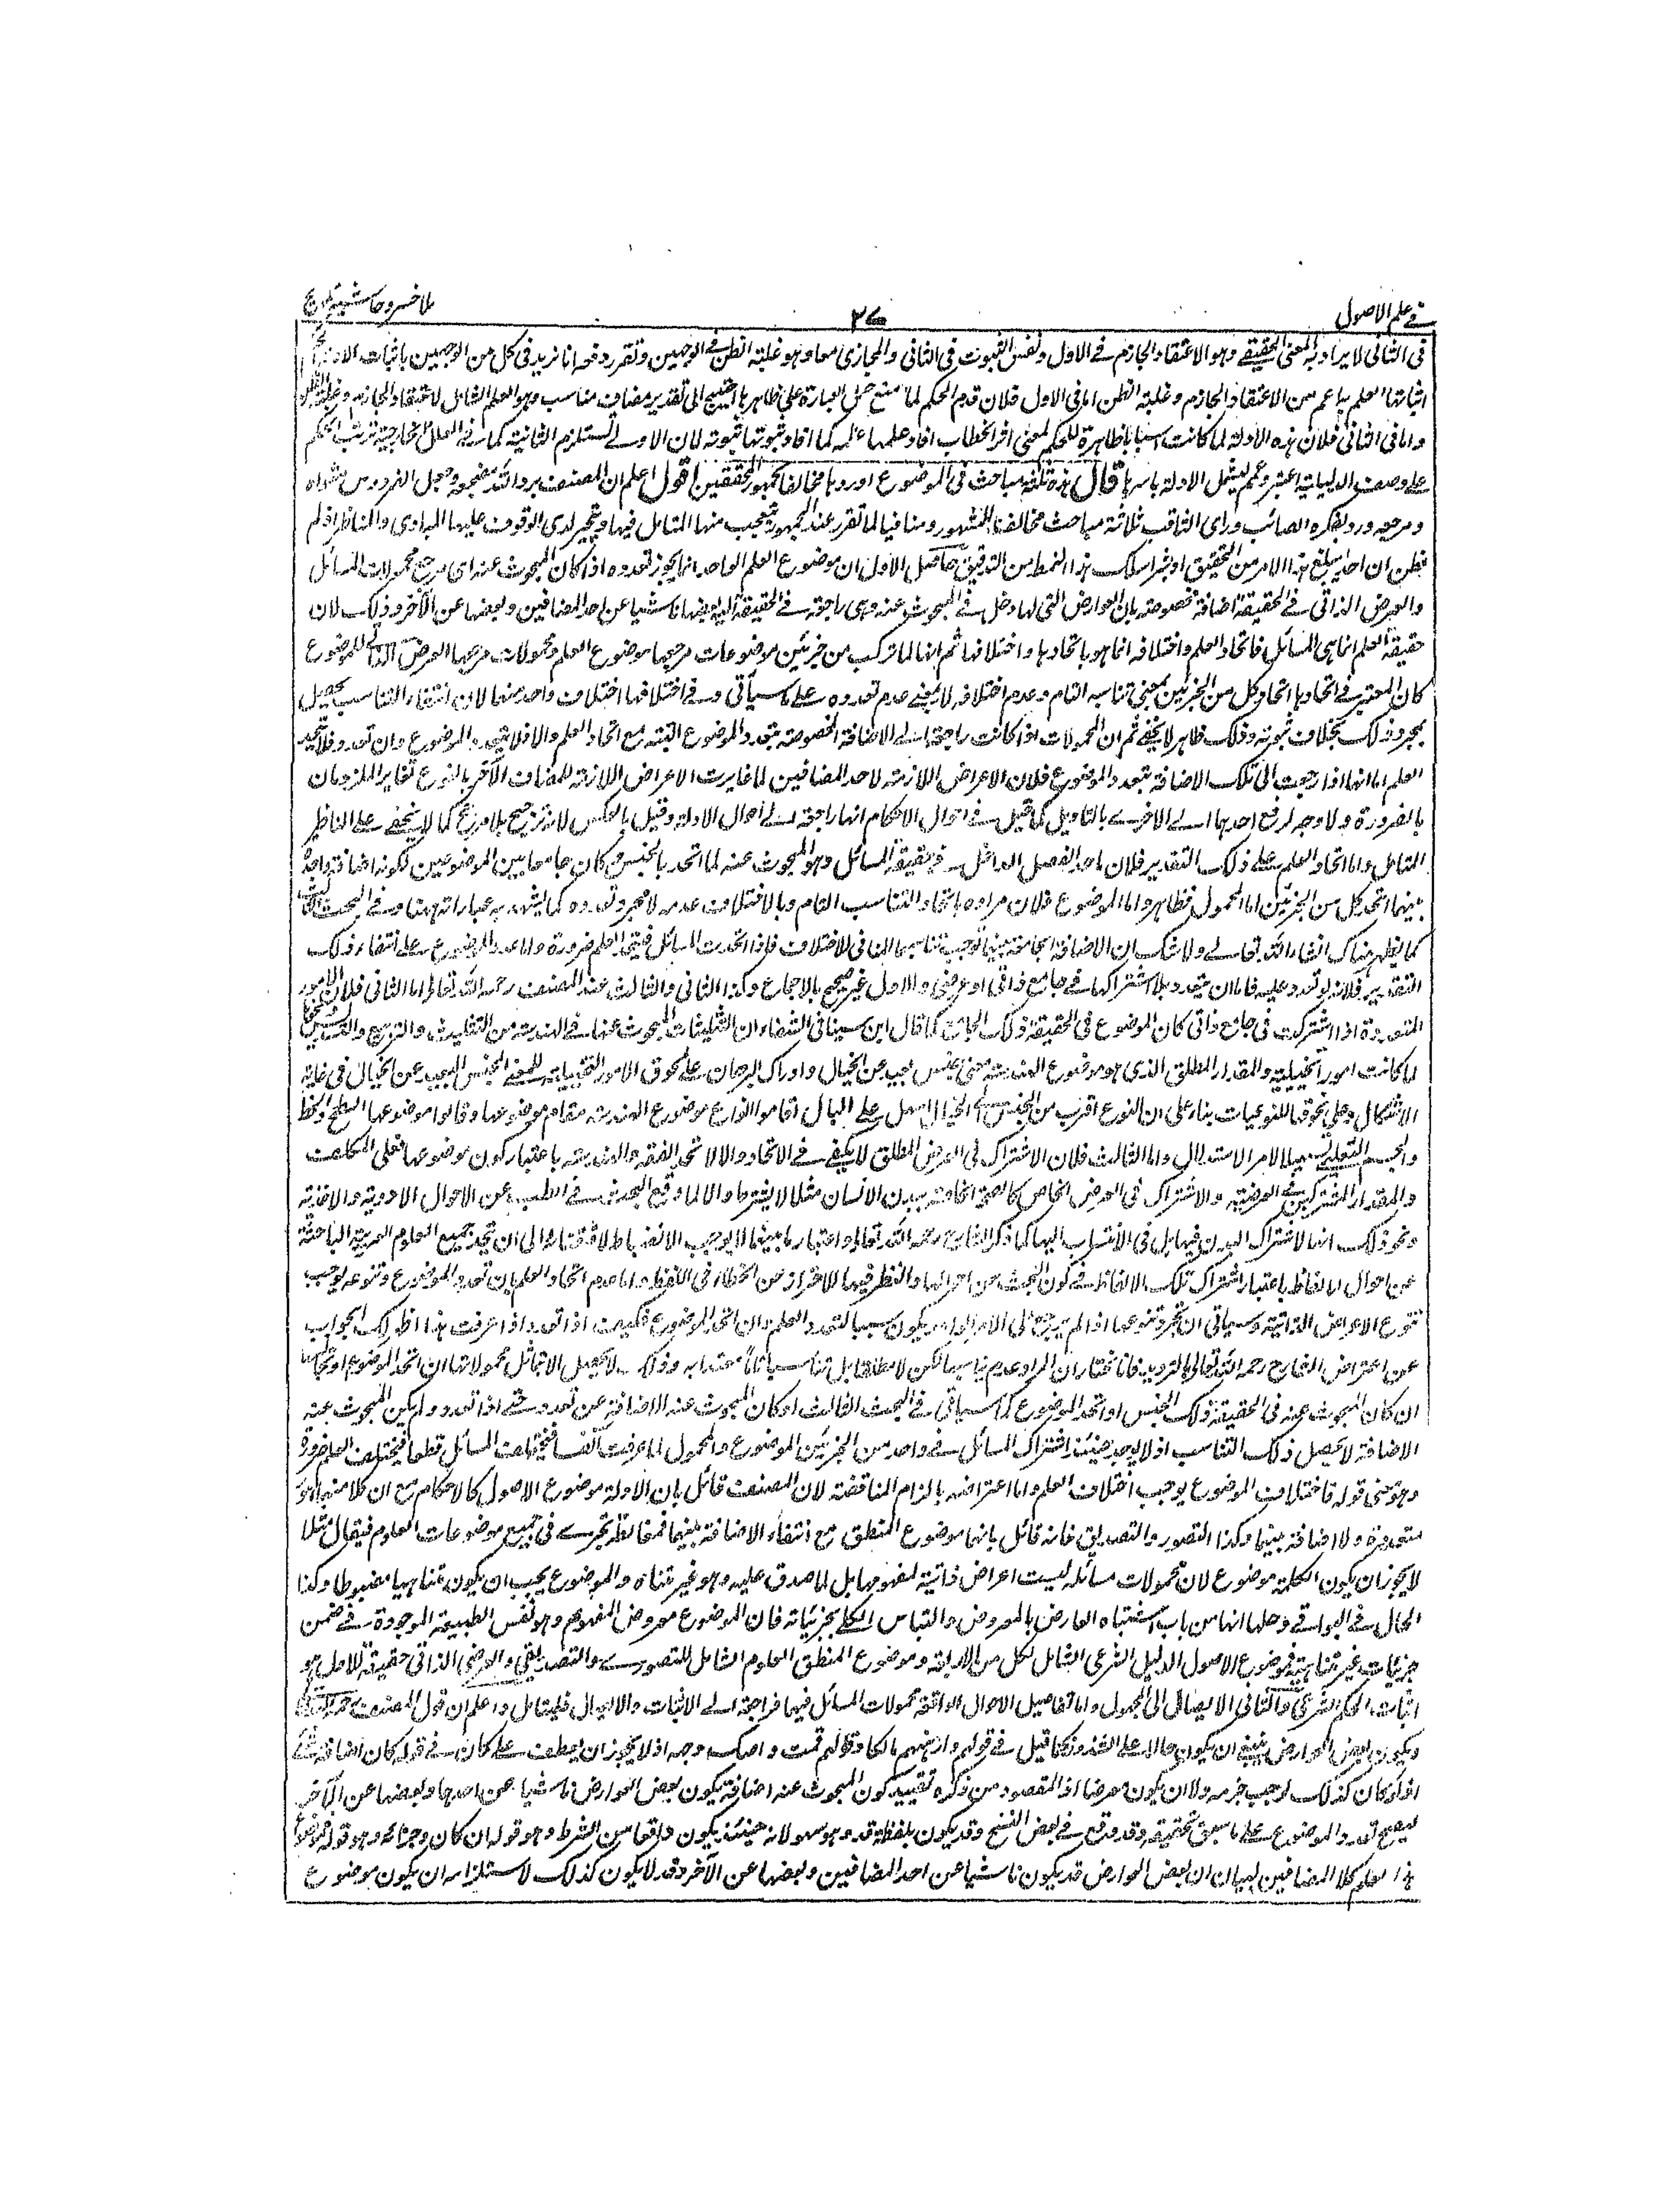 في علم الاصول
٢٧
ملا خسرو حاشية تلويح
في الثاني لا يراد به المعنى الحقيقي وهو الاعتقاد الجازم في الاول ونفس الثبوت في الثاني والمجازي معا وهو غلبة الظن في الوجهين وتقرر دفعه انا نريد في كل من الوجهين باثبات الادلة
اثباتها العلم بما يعم من الاعتقاد الجازم وغلبة الظن اما في الاول فلان قدم الحكم لما منع حمل العبارة على ظاهرها احتيج الى تقدير مضاف مناسب وهو العلم الشامل للاعتقاد الجازم وغلبة الظن
واما في الثاني فلان هذه الادلة لما كانت اسبابا ظاهرة للحكم بمعنى اثر الخطاب افاد علمها علمه كما افاد ثبوتها ثبوته لان الاولى تستلزم الثانية كما في العلل الخارجية ترتب الحكم
على وصف الدليلية اعتبر وعمم ليشمل الادلة باسرها قال هذه ثلثة مباحث في الموضوع اوردها مخالفا لجمهور المحققين اقول اعلم ان المصنف برد الله مضجعه وجعل الفردوس مثواه
ومرجعه ورد بفكره الصائب وراي الثاقب ثلاثة مباحث مخالفة للمشهور ومنافيا لما تقرر عند الجمهور يتعجب منها المتامل فيها ويتحير لدى الوقوف عليها البادي والمناظر اذ لم
يظن ان احدا يبلغ هذا الامر من التحقيق او بشرا سلك هذا النمط من التدقيق حاصل الاول ان موضوع العلم الواحد انما يجوز تعدده اذا كان المبحوث عنه اي مرجع محمولات المسائل
والعرض الذاتي في الحقيقة اضافة مخصوصة بان العوارض التي لها دخل في المبحوث عنه وهي راجعة في الحقيقة اليه بعضها ناشيا عن احد المضافين وبعضها عن الآخر وذلك لان
حقيقة العلم انما هي المسائل فاتحاد العلم واختلافه انما هو باتحادها واختلافها ثم انها لما تركب من جزئين موضوعات مرجعها موضوع العلم ومحمولات مرجعها العرض الذاتي للموضوع
كان المعتبر في اتحادها اتحاد كل من الجزئين بمعنى تناسبه التام وعدم اختلافه لا بمعنى عدم تعدده على ما سيأتي وفي اختلافها اختلاف واحد منهما لان انتفاء التناسب يحصل
بمجرد ذلك بخلاف ثبوته وذلك ظاهر لا يخفى ثم ان المحمولات اذا كانت راجعة الى الاضافة المخصوصة يتعدد الموضوع البتة مع اتحاد العلم والا فلا يتعدد الموضوع وان تعدد فلا يتحد
العلم اما انها اذا رجعت الى تلك الاضافة يتعدد الموضوع فلان الاعراض اللازمة لاحد المضافين لما غايرت الاعراض اللازمة للمضاف الآخر بالنوع تغاير الملزومان
بالضرورة ولا وجه لرفع احدهما الى الاخرى بالتاويل كما قيل في احوال الاحكام انها راجعة الى احوال الادلة وقيل بالعكس لانه ترجيح بلا مرجح كما لا يخفى على الناظر
المتامل واما اتحاد العلم على ذلك التقدير فلان ما هو الفصل الداخل في حقيقة المسائل وهو المبحوث عنه لما اتحد بالجنس كان جامعا بين الموضوعين لكونه اضافة واحدة
بينهما اتحد كل من الجزئين اما المحمول فظاهر واما الموضوع فلان مراده باتحاد التناسب التام وبالاختلاف عدمه لا مجرد تعدده كما يشهد به عباراته ههنا وفي البحث الثالث
كما يظهر هناك انشاء الله تعالى ولا شك ان الاضافة الجامعة بينهما توجب تناسبهما المنافي للاختلاف فاذا اتحدت المسائل فيتحد العلم ضرورة واما عدد الموضوع على انتفاء ذلك
التقدير فلانه لو تعدد عليه فاما ان يتعدد بلا اشتراكها في جامع ذاتي او عرضي والاول غير صحيح بالاجماع وكذا الثاني والثالث عند المصنف رحمه الله تعالى اما الثاني فلان الامور
المتعددة اذا اشتركت في جامع ذاتي كان الموضوع في الحقيقة ذلك الجامع كما قال ابن سينا في الشفاء ان المبحوث عنها في الهندسة من التثليث والتربيع والتسديس
لما كانت امورا تخيلية والمقدار المطلق الذي هو موضوع الهندسة معنى جنسي بعيد عن الخيال وادراك البرهان على لحوق الامور القريبة للمعنى الجنسي البعيد عن الخيال في غاية
الاشكال وعلى لحوقها للنوعيات بناء على ان النوع اقرب من الجنس الى الخيال اسهل على البال اقاموا انواع موضوع الهندسة مقام موضوعها وقالوا موضوعها السطح والخط
والجسم التعليمي تسهيلا لامر الاستدلال واما الثالث فلان الاشتراك في العرض المطلق لا يكفي في الاتحاد والا لاتحد الفقه والهندسة باعتبار كون موضوعها فعل المكلف
والمقدار المشتركين في العرضية والاشتراك في العرض الخاص كالصحة الخاصة ببدن الانسان مثلا لا يشترط والا لما وقع البحث في الطب عن الاحوال الادوية والاغذية
ونحو ذلك اذ لا اشتراك للبدن فيها بل في الانتساب اليها كما ذكر الشارح رحمه الله تعالى واعتبار ما بينهما لا يوجب الانضباط لافضائه الى ان يتحد جميع العلوم العربية الباحثة
عن احوال الالفاظ باعتبار اشتراك تلك الالفاظ في كون البحث عن احوالها والنظر فيها للاحتراز عن الخطاء في اللفظ واما عدم اتحاد العلم بان تعدد الموضوع وتنوعه يوجب
تنوع الاعراض الذاتية وسيأتي ان مجرد تنوعها اذا لم يرجع الى الامر الواحد يكون سببا لتعدد العلم وان اتحد الموضوع فكيف اذا تعدد اذا عرفت هذا اظهر لك الجواب
عن اعتراض الشارح رحمه الله تعالى بالترديد فانا نختار ان المراد عدم تناسبها لكن لا مطلقا بل تناسبا تاما معتدا به وذلك لا يحصل الا بتماثل محمولاتها ان اتحد الموضوع
ان كان المبحوث عنه في الحقيقة ذلك الجنس او اتحد الموضوع كما سيأتي في البحث الثالث او كان المبحوث عنه الاضافة عن تعدد حتى اذا تعدد ولم يكن المبحوث عنه
الاضافة لا يحصل ذلك التناسب اذ لا يوجد حينئذ اشتراك المسائل في واحد من الجزئين الموضوع والمحمول لما عرفت آنفا فيختلف المسائل قطعا فيختلف العلم ضرورة
وهو معنى قوله فاختلاف الموضوع يوجب اختلاف العلم واما اعتراضه بالزام المناقضة لان المصنف قائل بان الادلة موضوع الاصول كالاحكام مع ان كلا منهما امور
متعددة ولا اضافة بينها وكذا التصور والتصديق فانه قائل بانهما موضوع المنطق مع انتفاء الاضافة بينهما فمغالطة تجري في جميع موضوعات العلوم فيقال مثلا
لا يجوز ان يكون الكلمة موضوع لان محمولات مسائله ليست اعراض ذاتية لمفهومها بل لما صدق عليه وهو غير متناه والموضوع يجب ان يكون متناهيا مضبوطا وكذا
الحال في البواقي وحلها انها من باب اشتباه العارض بالمعروض والتباس الكلي بجزئياته فان الموضوع معروض المفهوم وهو نفس الطبيعة الموجودة في ضمن
جزئيات غير متناهية فموضوع الاصول الدليل الشرعي الشامل لكل من الاربعة وموضوع المنطق المعلوم الشامل للتصوري والتصديقي والعرض الذاتي حقيقة للاول هو
اثبات الحكم الشرعي وللثاني الايصال الى المجهول واما تفاصيل الاحوال الواقعة محمولات المسائل فيها فراجعة الى الاثبات والايصال فليتامل واعلم ان قول المصنف رحمه الله تعالى
ويكون بعض العوارض ينبغي ان يكون حالا على الشذوذ كما قيل في قولهم وارهنهم مالكا وقولهم قمت واصك وجهه اذ لا يجوز ان يعطف على كان في قوله كان اضافة
اذ لو كان كذلك لوجب جزمه ولا ان يكون معرضا اذ المقصود من ذكره تقييد كون المبحوث عنه اضافة بكون بعض العوارض ناشيا عن احدهما وبعضها عن الآخر
ليصح تعدد الموضوع على ما سبق تحقيقه وقد وقع في بعض النسخ وقد يكون بلفظة قد وهو سهو لانه حينئذ يكون واقعا بين الشرط وهو قوله ان كان وجزائه وهو قوله فموضوع
هذا العلم كلا المضافين لبيان ان بعض العوارض قد يكون ناشيا عن احد المضافين وبعضها عن الآخر وقد لا يكون كذلك لاستلزامه ان يكون موضوع